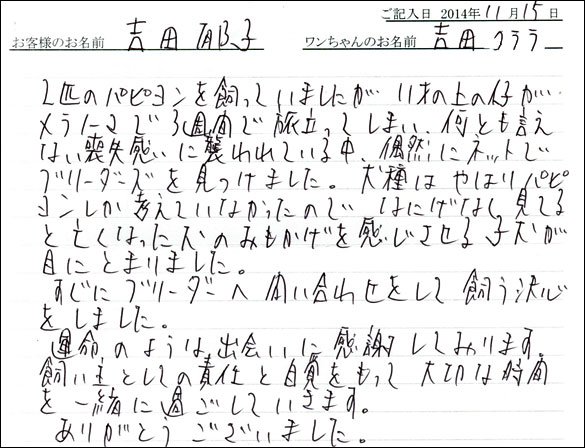 ご記入日 2014年11月15日
お客様のお名前 吉田 郁子 ワンちゃんのお名前 吉田 クララ
2匹のパピヨンを飼っていましたが 11才の上の仔が
メラノーマで3週間で旅立ってしまい、何とも言え
ない喪失感いに襲われている中、偶然にネットで
ブリーダーズを見つけました。犬種はやはりパピ
ヨンしか考えていなかったので なにげなし見てる
と亡くなった犬のおもかげを感じさせる子犬が
目にとまりました。
すぐにブリーダーへ問い合わせをして飼う決心
をしました。
運命のような出会いに感謝しております。
飼い主としての責任と自覚をもって 大切な時間
を一緒に過ごしていきます。
ありがとうございました。